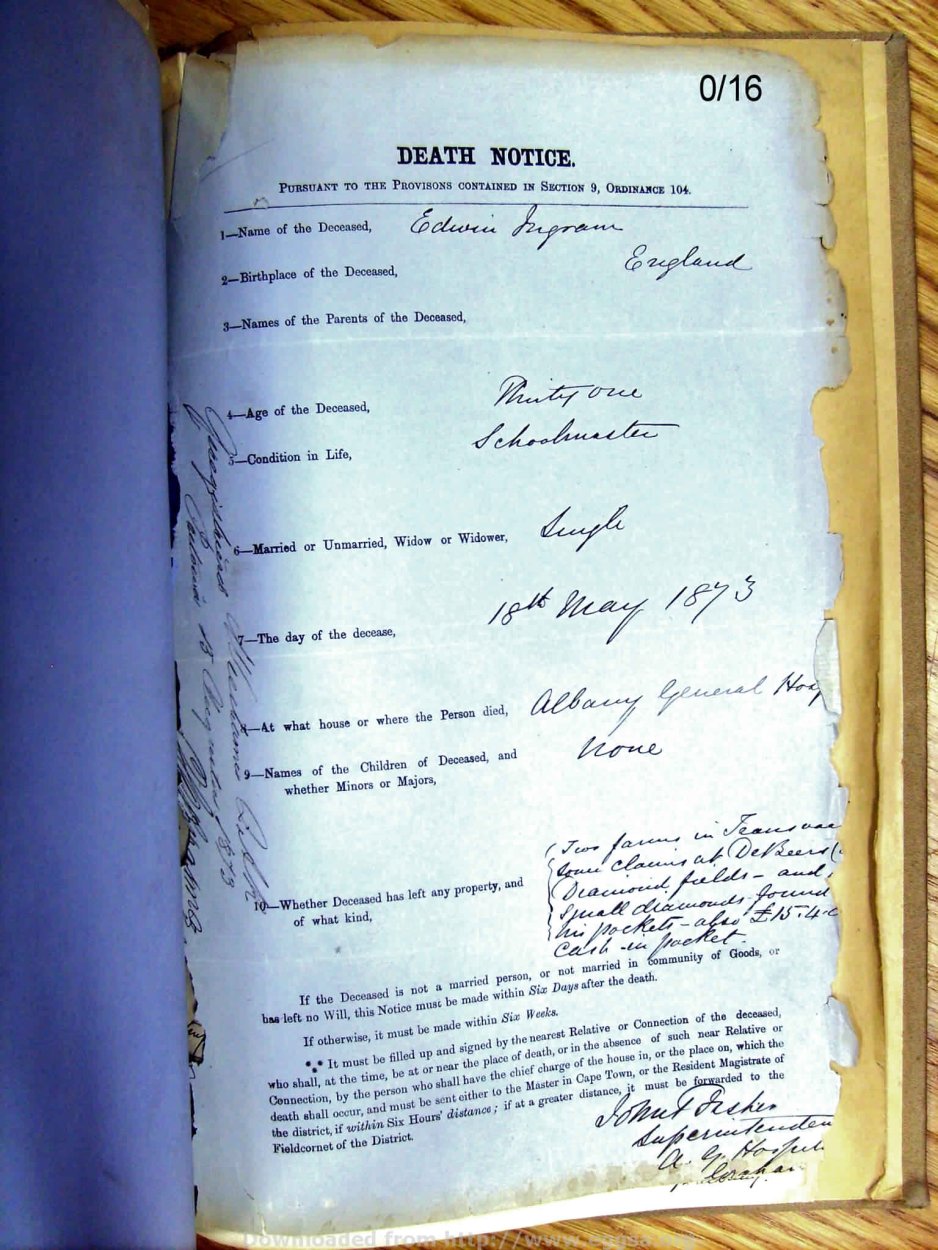 0/16
DEATH NOTICE.
PURSUANT TO THE PROVISONS CONTAINED IN SECTION 9, ORDINANCE 104.
1—Name of the Deceased, Edwin Ingram
2—Birthplace of the Deceased, England
3—Names of the Parents of the Deceased,
4—Age of the Deceased, Thirty one
5—Condition in Life, Schoolmaster
6—Married or Unmarried, Widow or Widower, Single
7—The day of the decease, 18th May 1873
8—At what house or where the Person died, Albany General Hosp
9—Names of the Children of Deceased, and None
whether Minors or Majors,
Two farms in Transvaa
some claims at DeBeers
Diamond fields – and
10—Whether Deceased has left any property, and
Small diamonds found
of what kind,
his pockets – also £15.4
cash in pocket.
If the Deceased is not a married person, or not married in community of Goods, or
has left no Will, this Notice must be made within Six Days after the death.
If otherwise, it must be made within Six Weeks.
It must be filled up and signed by the nearest Relative or Connection of the deceased,
who shall, at the time, be at or near the place of death, or in the absence of such near Relative or
Connection, by the person who shall have the chief charge of the house in, or the place on, which the
death shall occur, and must be sent either to the Master in Cape Town, or the Resident Magistrate of
the district, if within Six Hours' distance; if at a greater distance, it must be forwarded to the
Fieldcornet of the District.
John T Fisher
Superintenden
A. G. Hospit
Downloaded from http://www.eggsa.org